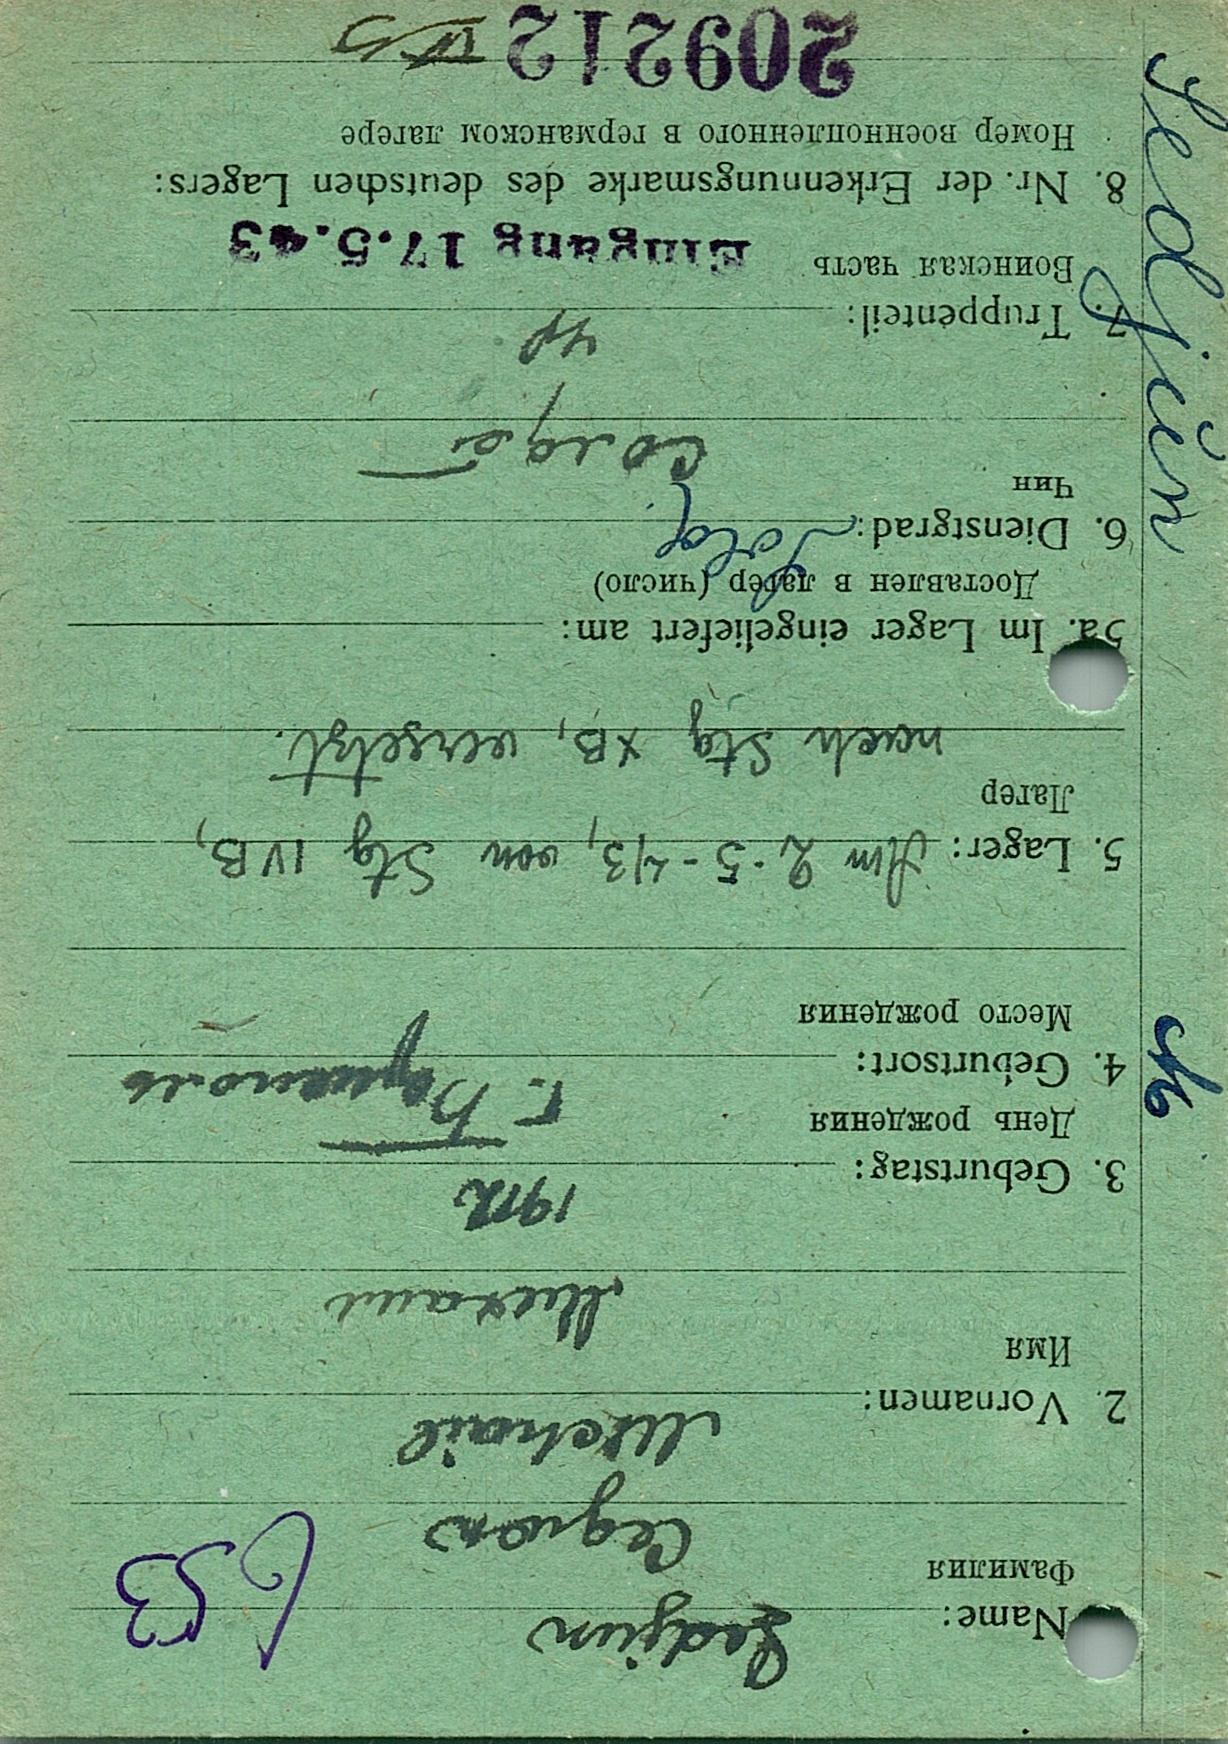 Name: Sedjin
Фамилия
653
2. Vornamen: Michail
Имя
Михаил
3. Geburtstag: 1912
День рождения
4. Geburtsort: г.
Место рождения
5. Lager: Am 2.5-43, von Stg IVB,
Лагер
nach Stg XB, versetzt.
5a. Im Lager eingeliefert am:
Доставлен в лагер (число)
6. Dienstgrad: Sold
Чин
Солдат
7. Truppenteil:
Воинская часть
Eingang 17.5.43
8. Nr. der Erkennungsmarke des deutschen Lagers:
Номер военнопленного в германском лагере
209212
Sedjin